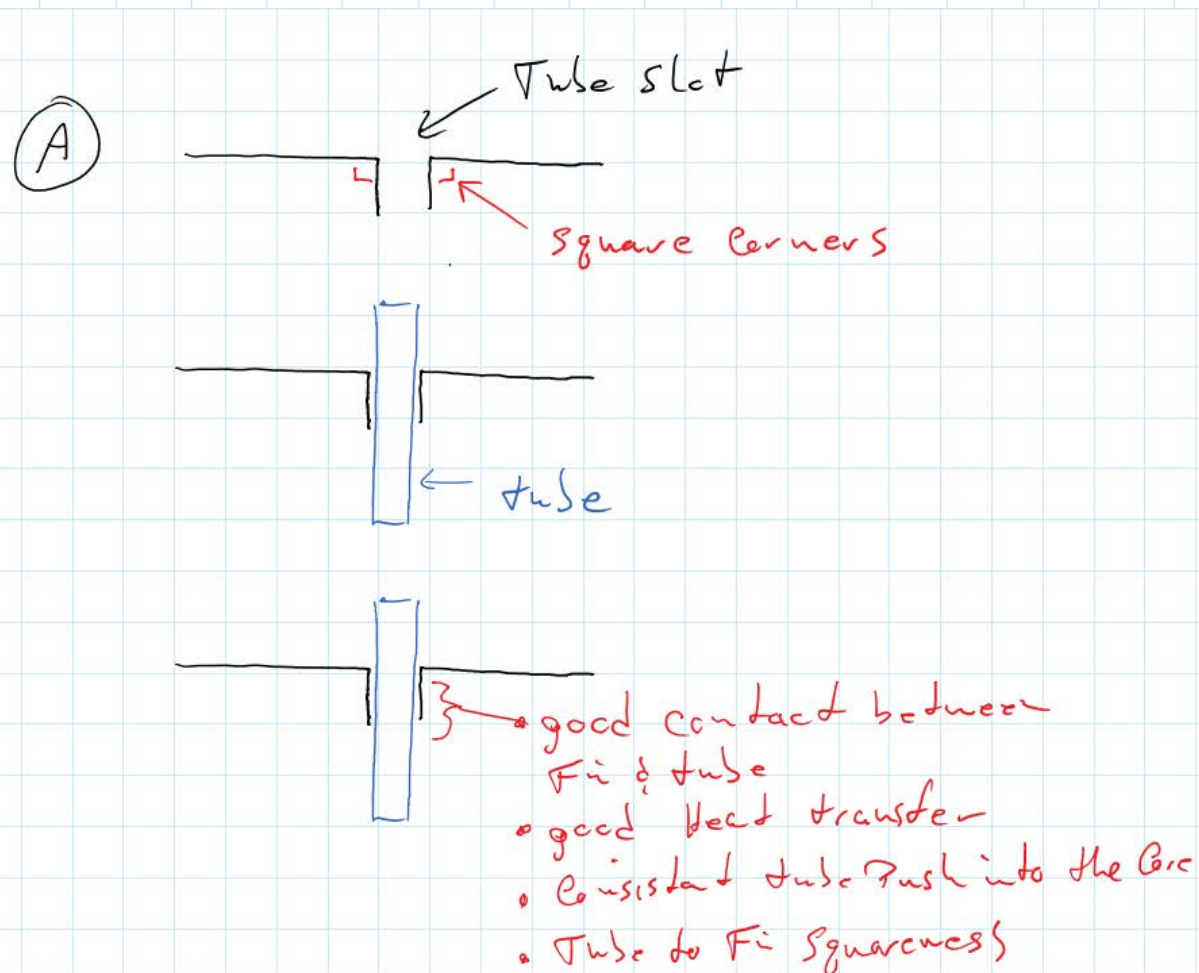 A
Tube slot
square Corners
tube
• good contact between
Fin & tube
• good Heat transfer
• Consistant tube Push into the Core
• Tube to Fin Squareness